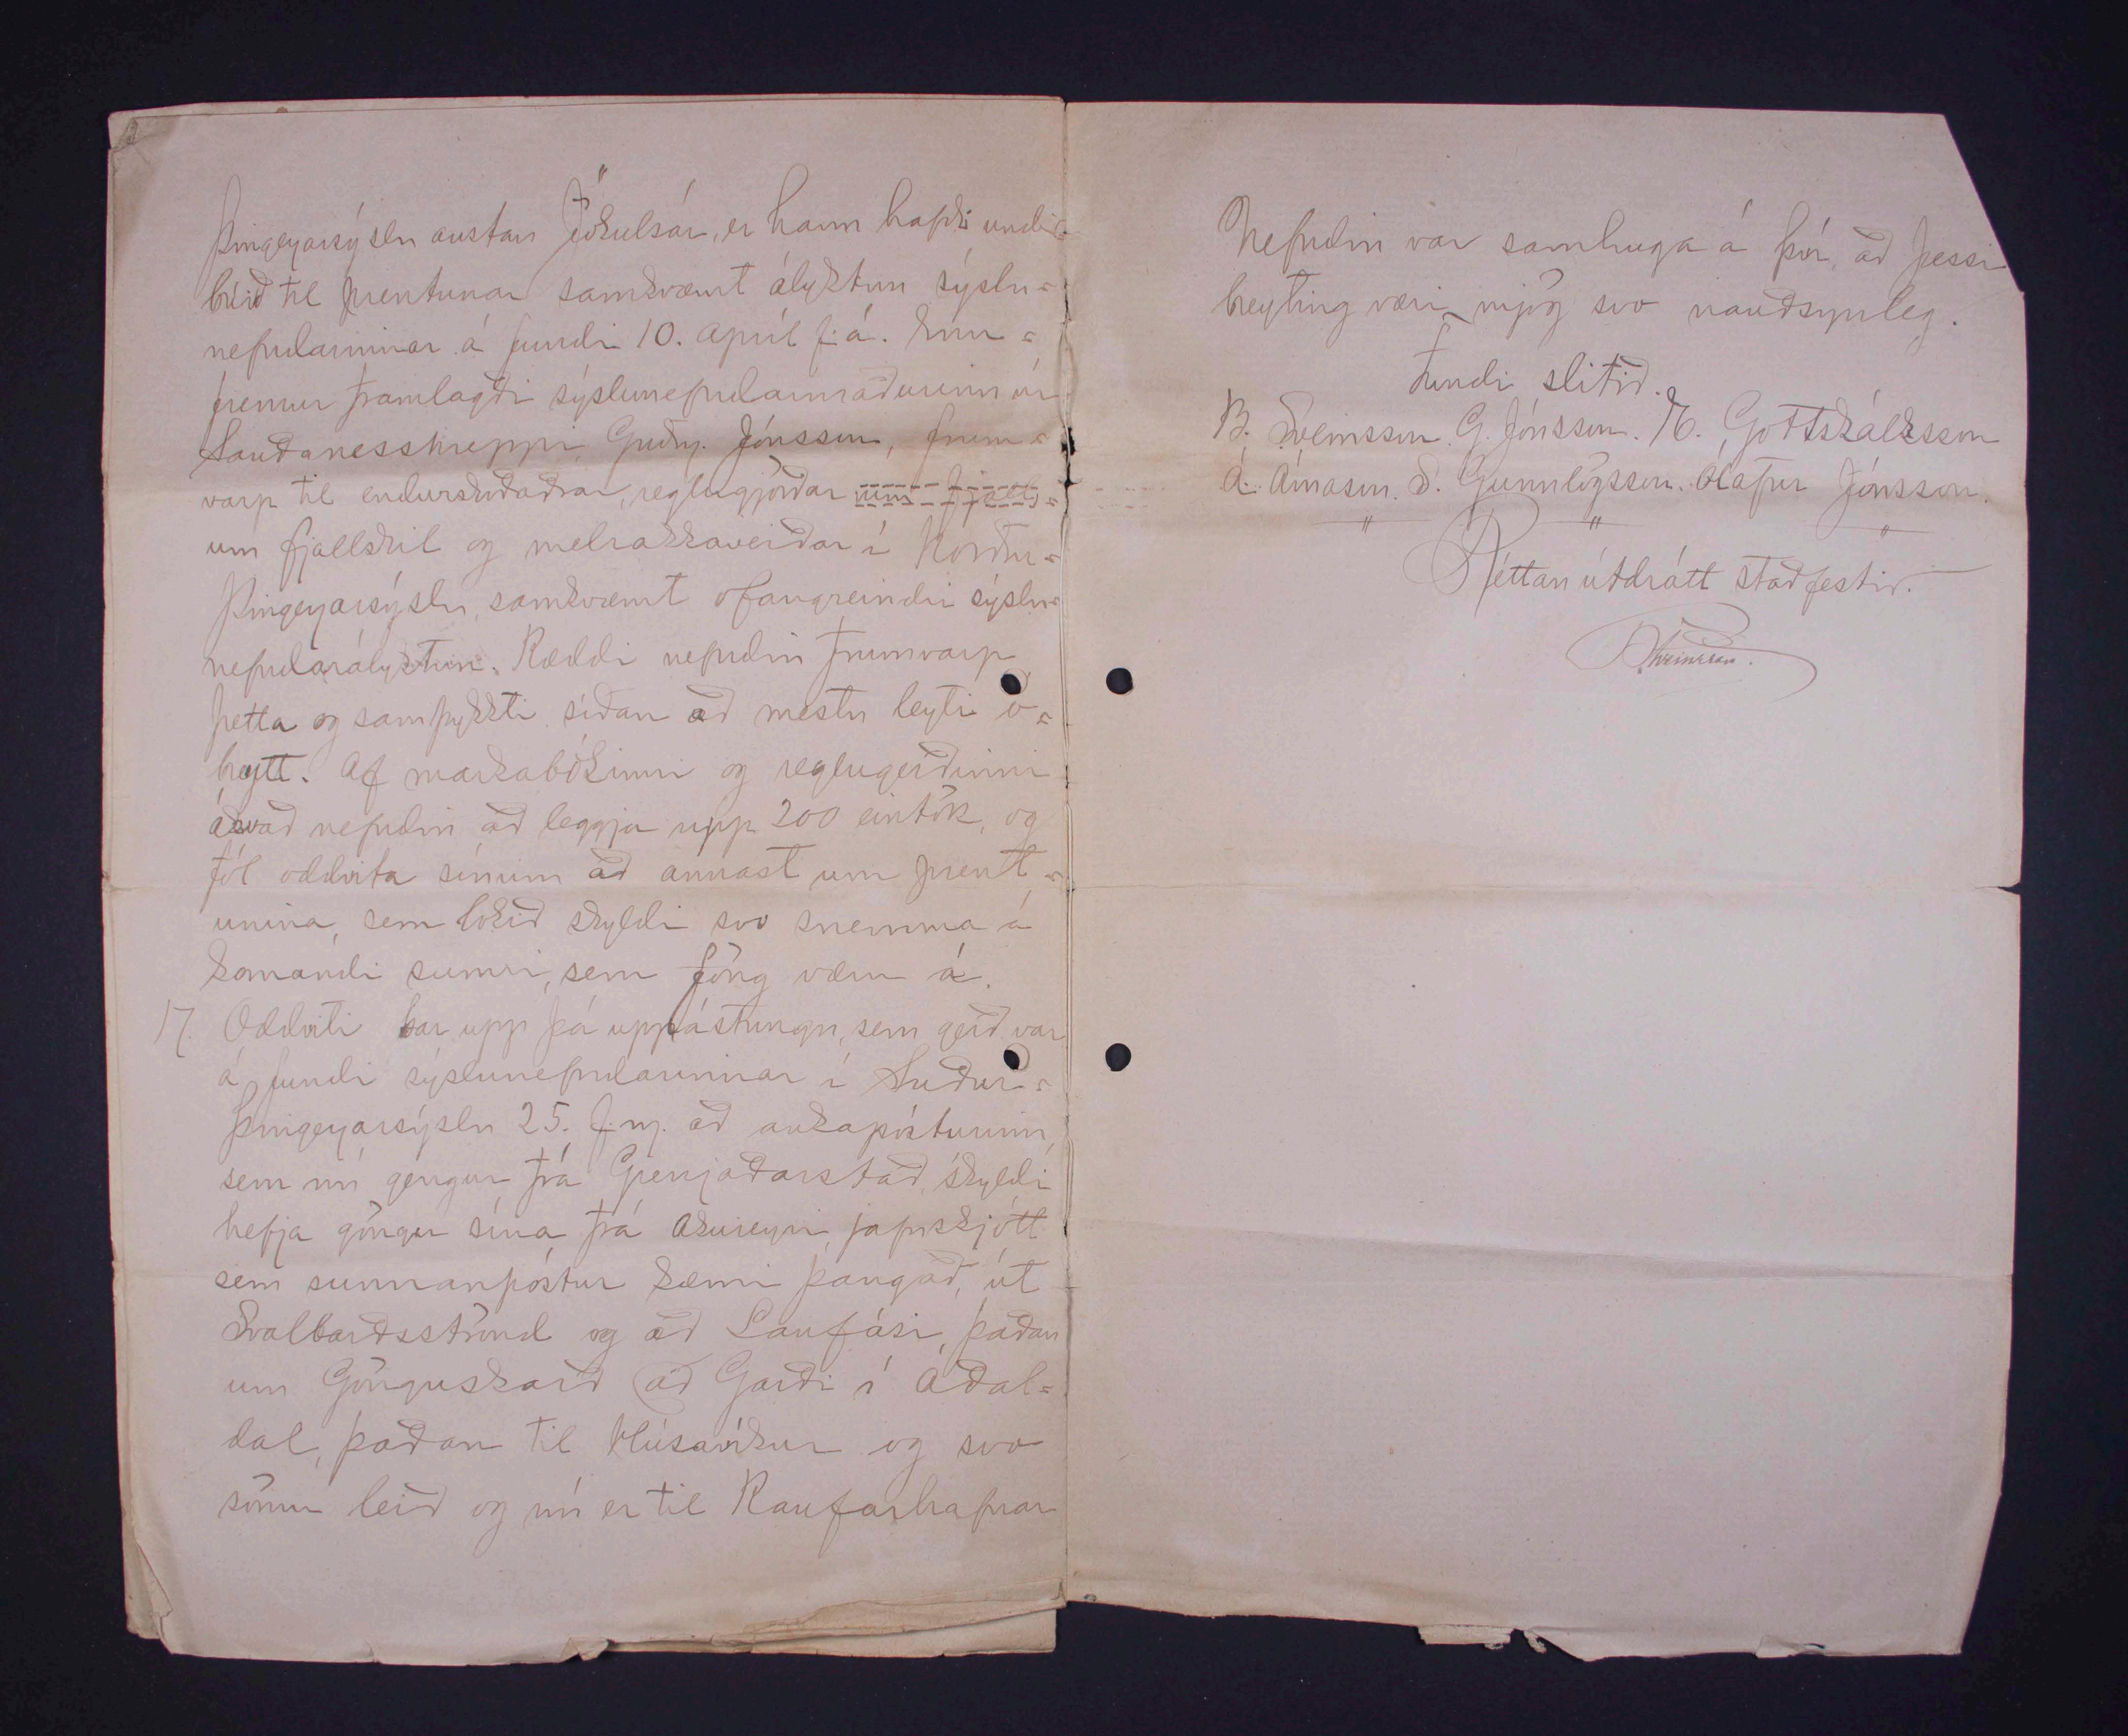 Þingeyarsýslu austan Jökulsár, er hann hafði undir=
búið til prentunar samkvæmt ályktun sýslu=
nefndarinnar á fundi 10. apríl f. á. Enn=
fremur framlagði sýslunefndarmaðurinn úr
Sauðanesshreppi, Guðm. Jónsson, frum=
varp til endurskoðaðrar reglugjörðar um fjall=
um fjallskil og melrakkaveiðar í Norður=
Þingeyarsýslu, samkvæmt ofangreindri sýslu=
nefndarályktun. Ræddi nefndin frumvarp
þetta og samþykkti síðan að mestu leyti ó=
breytt. Af markabókinni og reglugerðinni
ákvað nefndin að leggja upp 200 eintök, og
fól oddvita sínum að annast um prent=
unina, sem lokið skyldi svo snemma á
komandi sumri, sem föng væru á.
17. Oddviti bar upp þá uppástungu, sem gerð var
á fundi sýslunefndarinnar í Suður=
Þingeyarsýslu 25. f. m. að aukapósturinn,
sem nú gengur frá Grenjaðarstað, skyldi
hefja göngu sína frá Akureyri, jafnskjótt
sem sunnanpóstur kæmi þangað, út
Svalbarðsströnd og að Laufási, þaðan
um Gönguskarð að Garði í Aðal=
dal, þaðan til Húsavíkur og svo
sömu leið og nú er til Raufarhafnar
Nefndin var samhuga á því, að þessi
breyting væri mjög svo nauðsynleg.
Fundi slitið.
B. Sveinsson. G. Jónsson. Gottskálksson
Á. Árnason. Gunnlögsson. Ólafur Jónsson.
" " "
Réttan útdrátt staðfestir.
BSveinsson.